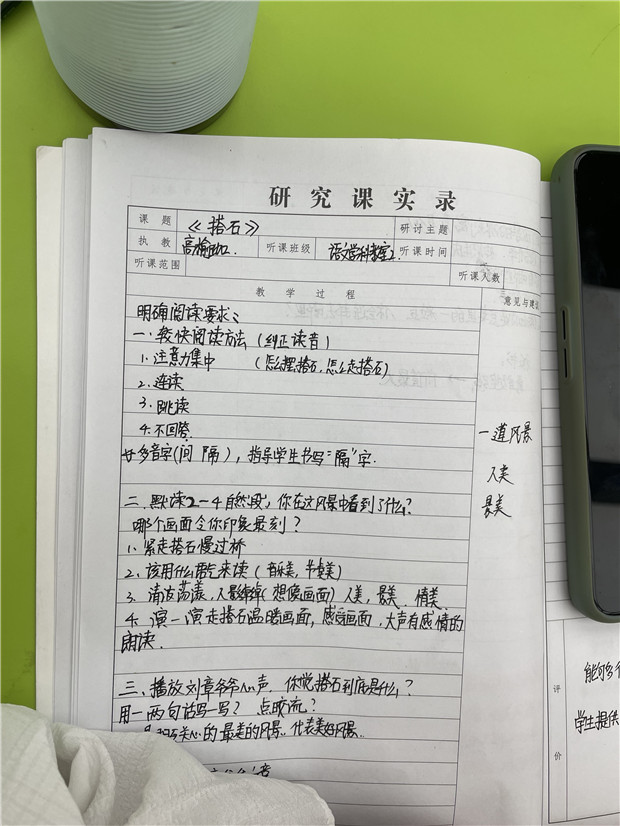 研究课实录
课题 《搭石》 研讨主题
执教 听课班级 语文学科教室2 听课时间
听课范围 听课人数
教学过程 意见与建
明确阅读要求：
一、较快阅读方法（纠正读音）
1.注意力集中 （怎么摆搭石，怎么走搭石）
2.连读
3.跳读
4.不回答
多音字（间 隔），指导学生书写"隔"字.
一道风景
人美
景美
二、默读2-4自然段，你在这风景中看到了什么？
哪个画面令你印象最刻？
1.紧走搭石慢过桥
2.该用什么语气来读（音乐美，节奏美）
3.清波荡漾，人影绰绰（想像画面）人美，景美，情美
4.演一演走搭石温暖画面，感受画面，大声有感情的
朗读.
三、播放刘章爷爷心声，你觉搭石到底是什么？
用一两句话写一写？
的最美的风景.代表美好风景.
评价
能够
学生提供